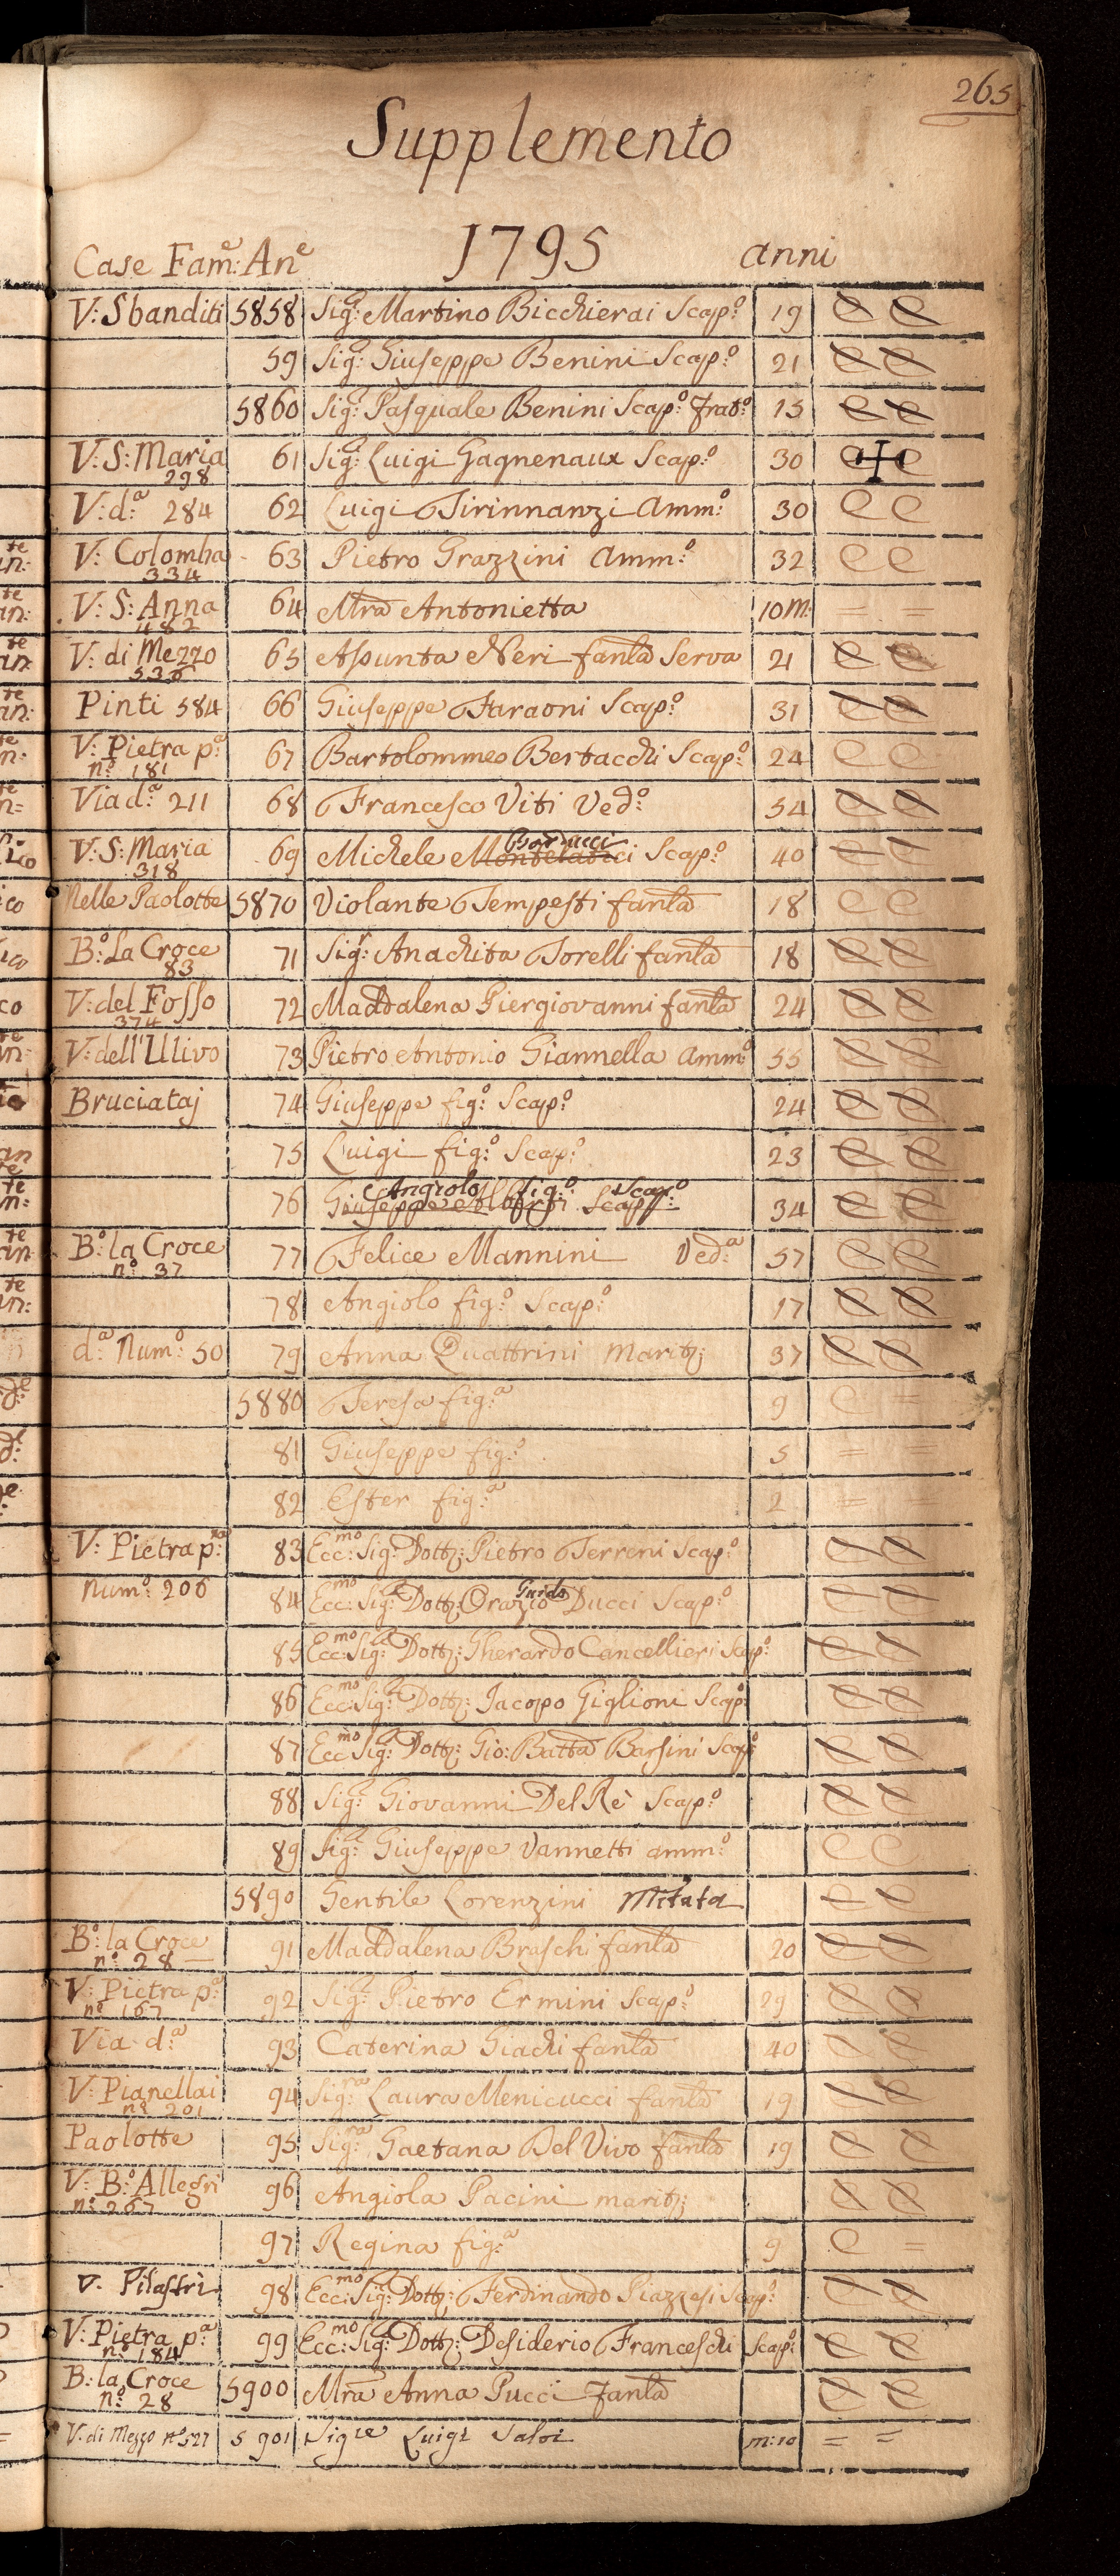 265
Supplemento
1795
Case Fam:e An:e anni
V: Sbanditi 5858 Sig:e Martino Bicchierai Scap:o 19 C C
59 Sig:e Giuseppe Benini Scap:o 21 C C
5860 Sig:e Pasquale Benini Scap:o Frat:o 15 C C
V: S: Maria 298 61 Sig:e Luigi Gagnenaux Scap:o 30 C C
V: d:a 284 62 Luigi Tirinnanzi Amm:o 30 C C
V: Colomba 334 63 Pietro Grazzini Amm:o 32 C C
V: S: Anna 482 64 Mra Antonietta 10 M: = =
V: di Mezzo 536 65 Assunta Neri fanla Serva 21 C C
Pinti 584 66 Giuseppe Faraoni Scap:o 31 C C
V: Pietra p:a n:o 181 67 Bartolommeo Bertacchi Scap:o 24 C C
Via d:a 211 68 Francesco Viti Ved:o 54 C C
V: S: Maria 318 69 Michele Montelatici Barducci Scap:o 40 C C
Nelle Paolotte 5870 Violante Tempesti fanla 18 C C
B:o La Croce 83 71 Sig:r Anachita Torelli fanla 18 C C
V: del Fosso 374 72 Maddalena Piergiovanni fanla 24 C C
V: dell'Ulivo 73 Pietro Antonio Giannella Amm:o 55 C C
Bruciataj 74 Giuseppe fig:o Scap:o 24 C C
75 Luigi fig:o Scap:o 23 C C
76 Giuseppe Angiolo fig:o Scap:o Scap:o 34 C C
B:o la Croce n:o 37 77 Felice Mannini Ved:a 57 C C
78 Angiolo fig:o Scap:o 17 C C
d:a Num:o 50 79 Anna Quattrini Marit: 37 C C
5880 Teresa fig:a 9 C =
81 Giuseppe fig:o 5 = =
82 Ester fig:a 2 = =
V: Pietra p:na 83 Ecc:mo Sig:e Dott: Pietro Terreni Scap:o C C
Num:o 206 84 Ecc:mo Sig:e Dott: Orazio Guido Ducci Scap:o C C
85 Ecc:mo Sig:e Dott: Gherardo Cancellieri Scap:o C C
86 Ecc:mo Sig:e Dott: Jacopo Giglioni Scap:o C C
87 Ecc:mo Sig:e Dott: Gio: Batta Barsini Scap:o C C
88 Sig:e Giovanni Del Rè Scap:o C C
89 Sig:e Giuseppe Vannetti amm:o C C
5890 Gentile Lorenzini Mitata C C
B:o la Croce n:o 28 91 Maddalena Braschi fanla 20 C C
V: Pietra p:a n:o 167 92 Sig:e Pietro Ermini Scap:o 29 C C
Via d:a 93 Caterina Giachi fanla 40 C C
V: Pianellai n:o 201 94 Sig:ra Laura Menicucci fanla 19 C C
Paolotte 95 Sig:ra Gaetana Del Vivo fanla 19 C C
V: B:o Allegri n:o 267 96 Angiola Pacini marit: C C
97 Regina fig:a 9 C =
V. Pilastri 98 Ecc:mo Sig:e Dott: Ferdinando Piazzesi Scap:o C C
V: Pietra p:a n:o 184 99 Ecc:mo Sig:e Dott: Desiderio Franceschi Scap:o C C
B: la Croce n:o 28 5900 Mra Anna Pucci Fanla C C
V: di Mezzo n:o 527 5901 Sig:re Luigi Salvi m: 10 = =